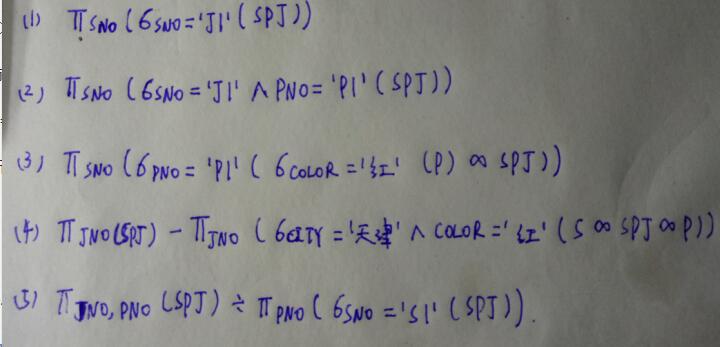 (1) π SNO (6 SNO = 'J1' (SPJ))
(2) π SNO (6 SNO = 'J1' ∧ PNO = 'P1' (SPJ))
(3) π SNO (6 PNO = 'P1' (6 COLOR = '红' (P) ∞ SPJ))
(4) π JNO (SPJ) - π JNO (6 CITY = '天津' ∧ COLOR = '红' (S ∞ SPJ ∞ P))
(5) π JNO, PNO (SPJ) ÷ π PNO (6 SNO = 'S1' (SPJ)).